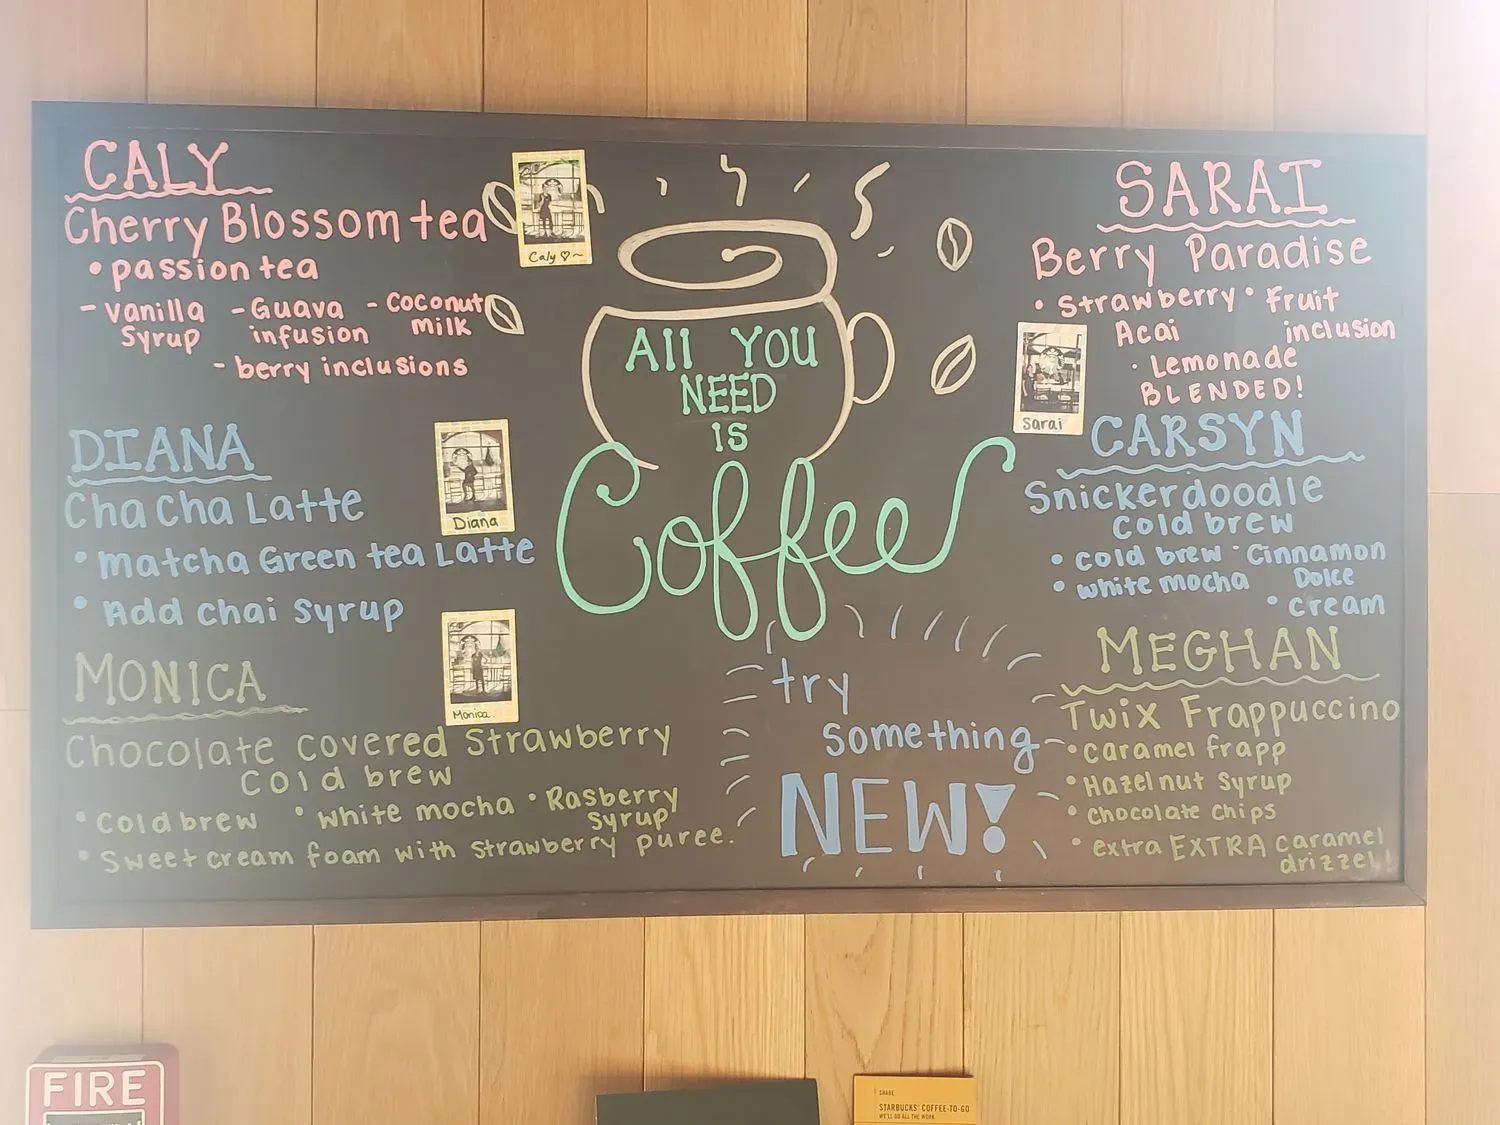 CALY
Cherry Blossom tea
• passion tea
- vanilla syrup - Guava infusion - coconut milk
- berry inclusions
Caly ♡~
DIANA
ChaCha Latte
• Matcha Green tea Latte
• Add chai syrup
Diana
MONICA
Chocolate covered Strawberry
cold brew
• cold brew • white mocha • Rasberry syrup
• Sweet cream foam with strawberry puree.
Monica.
All YOU
NEED
IS
Coffee
try
something
NEW!
SARAI
Berry Paradise
• Strawberry Acai • Fruit inclusion
• Lemonade
BLENDED!
Sarai
CARSYN
Snickerdoodle
cold brew
• cold brew • Cinnamon Dolce
• white mocha
• cream
MEGHAN
Twix Frappuccino
• caramel frapp
• Hazelnut syrup
• chocolate chips
• extra EXTRA caramel
drizzel!
FIRE
SHARE
STARBUCKS® COFFEE-TO-GO
WE'LL DO ALL THE WORK